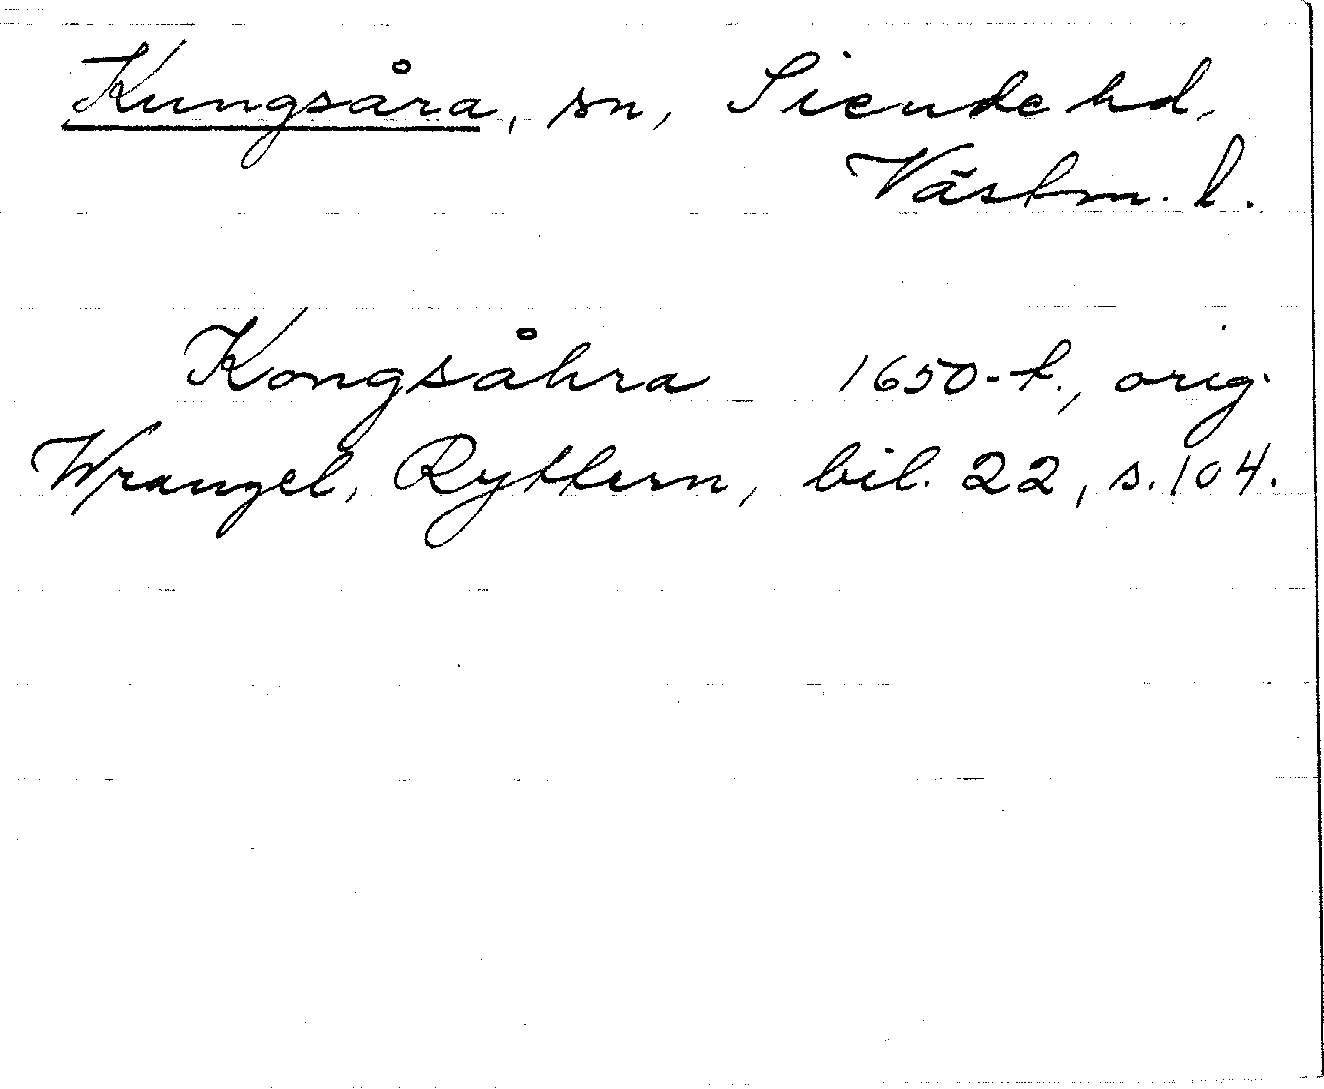 Kungsåra, sn, Siende hd,
Västm. l.
Kongsåhra 1650-t., orig.
Wrangel, Ryttern, bil. 22, s. 104.